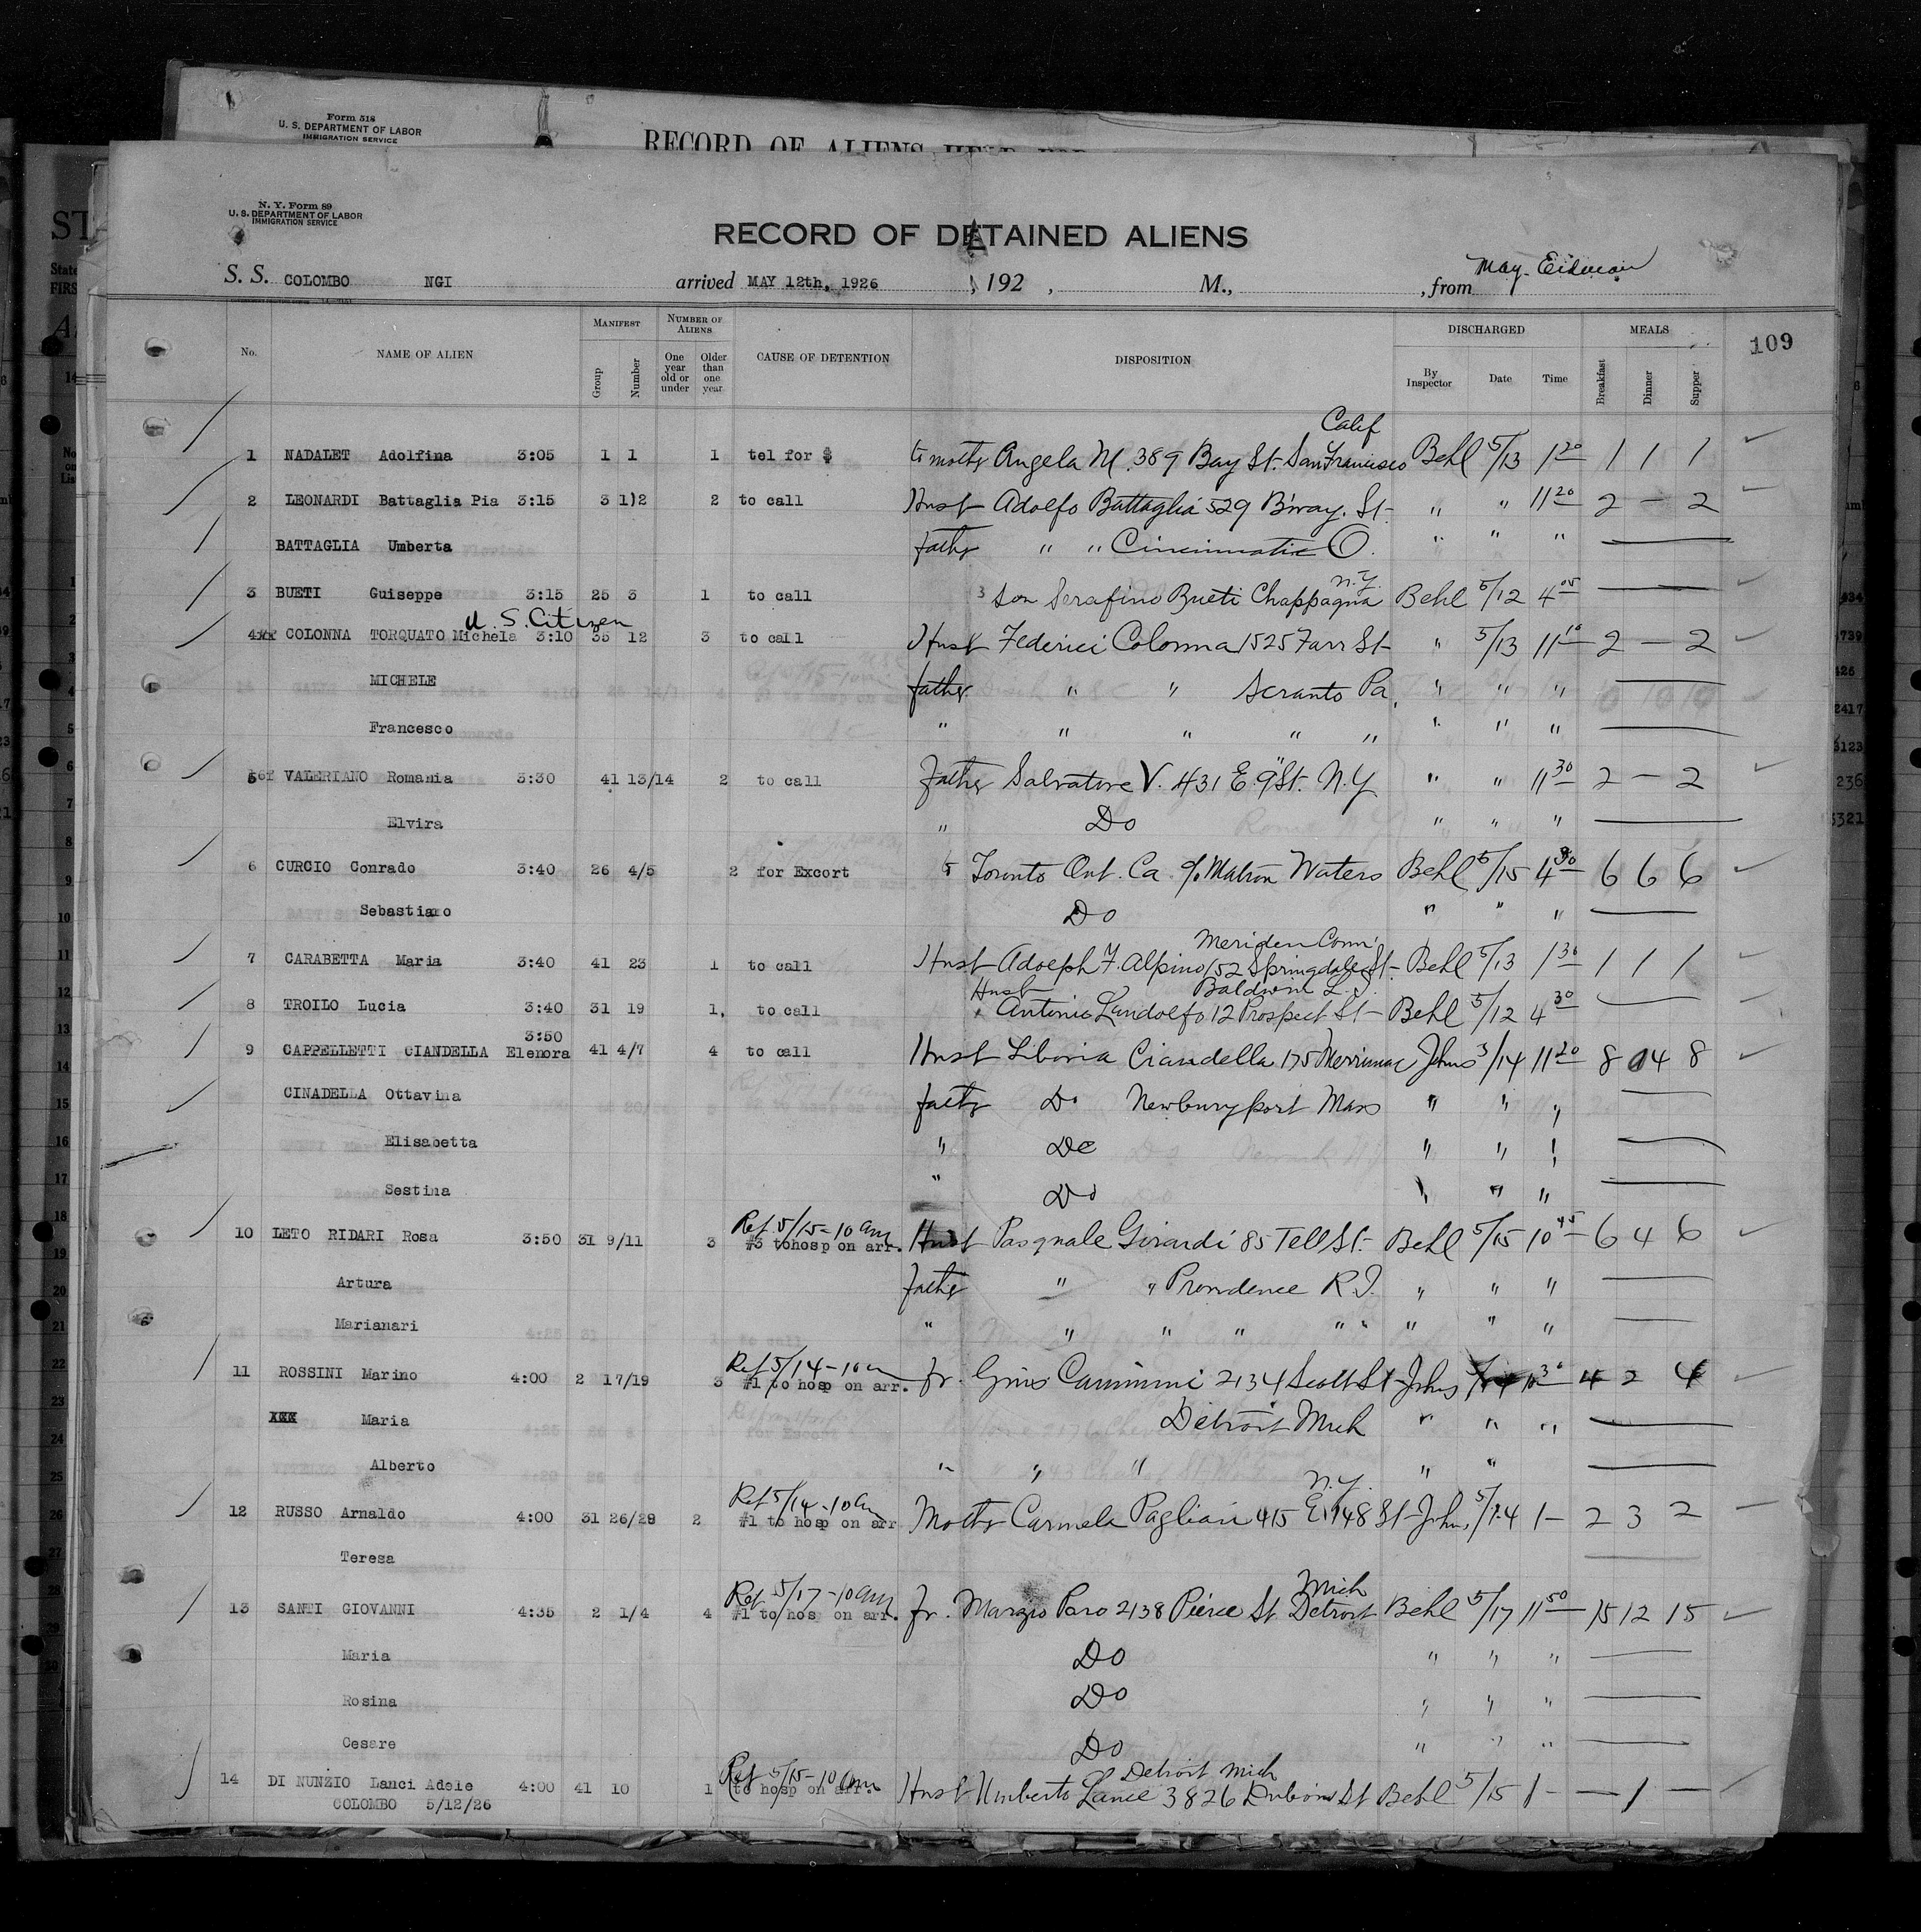 Form 518
U. S. DEPARTMENT OF LABOR
IMMIGRATION SERVICE
RECORD OF ALIENS HELD FOR
N. Y. Form 89
U. S. DEPARTMENT OF LABOR
IMMIGRATION SERVICE
RECORD OF DETAINED ALIENS
S. S. COLOMBO NGI arrived MAY 12th, 1926, 192 , M., , from May.
No. NAME OF ALIEN MANIFEST Group Number NUMBER OF ALIENS One year old or under Older than one year CAUSE OF DETENTION DISPOSITION DISCHARGED By Inspector Date Time MEALS Breakfast Dinner Supper 109
Calif
1 NADALET Adolfina 3:05 1 1 1 tel for $ to mother Angela M. 389 Bay St. San Francisco Behl 5/13 1 20 1 1 1
2 LEONARDI Battaglia Pia 3:15 3 1)2 2 to call Husb Adolfo Battaglia 529 B'way. St. " " 11 20 2 — 2
BATTAGLIA Umberta father " " Cincinnatie O. " " "
N.Y.
3 BUETI Guiseppe 3:15 25 3 1 to call 3 son Serafino Bueti Chappaqua Behl 5/12 4 05
U. S. Citizen
4 COLONNA TORQUATO Michela 3:10 35 12 3 to call Husb Federici Colonna 1525 Farr St " 5/13 11 10 2 — 2
MICHELE father " " Scranto Pa. " " "
Francesco " " " " " " " "
5 VALERIANO Romania 3:30 41 13/14 2 to call Father Salvatore V. 431 E. 9" St. N.Y " " 11 30 2 — 2
Elvira " Do " " "
6 CURCIO Conrado 3:40 26 4/5 2 for Excort to Toronto Ont. Ca. c/o Matron Waters Behl 5/15 4 30 6 6 6
Sebastiano Do " " "
Meriden Conn.
7 CARABETTA Maria 3:40 41 23 1 to call Husb Adolph F. Alpino 152 Springdale St- Behl 5/13 1 30 1 1 1
Husb Baldwin L. I.
8 TROILO Lucia 3:40 31 19 1, to call Antonio Landolfo 12 Prospect St- Behl 5/12 4 30
3:50
9 CAPPELLETTI CIANDELLA Elenora 41 4/7 4 to call Husb Liboria Ciandella 175 Merrimac Johns 5/14 11 20 8 4 8
CINADELLA Ottavina father Do Newburyport Mass " " "
Elisabetta " Do " " "
Sestina " Do " " "
Ref 5/15-10 am
10 LETO RIDARI Rosa 3:50 31 9/11 3 #3 tohosp on arr. Husb Pasquale Girardi 85 Tell St. Behl 5/15 10 45 6 4 6
Artura father " " Providence R I. " " "
Marianari " " " " " " " " "
Ref 5/14-10am
11 ROSSINI Marino 4:00 2 17/19 3 #1 to hosp on arr. fr. Gino 2134 Scott St Johns 10 30 4 2 4
XXX Maria Detroit Mich " " "
Alberto " " " " "
Ref 5/14-10am N.Y.
12 RUSSO Arnaldo 4:00 31 26/28 2 #1 to hosp on arr Mother Carmela Pagliari 415 E. 148 St- John, 5/14 1- 2 3 2
Teresa
Ref 5/17-10am Mich
13 SANTI GIOVANNI 4:35 2 1/4 4 #1 to hos on arr. fr. Marzio Paro 2138 Pierce St Detroit Behl 5/17 11 50 15 12 15
Maria Do " " "
Rosina Do " " "
Cesare Do " " "
Ref 5/15-10am Detroit Mich
14 DI NUNZIO Lanci Adele 4:00 41 10 1 to hosp on arr. Husb Umberto Lance 3826 Dubois St Behl 5/15 1- — 1 —
COLOMBO 5/12/26